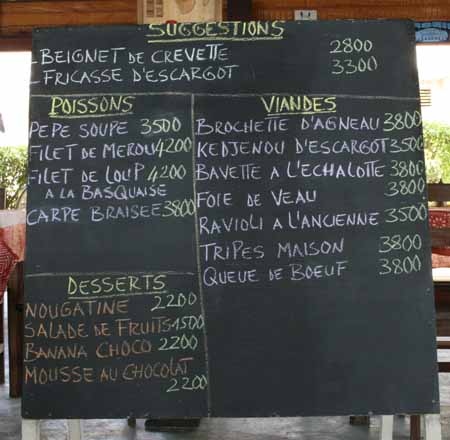 SUGGESTIONS
- BEIGNET DE CREVETTE 2800
- FRICASSE D'ESCARGOT 3300
POISSONS
PEPE SOUPE 3500
FILET DE MEROU 4200
FILET DE LOUP 4200
A LA BASQUAISE
CARPE BRAISEE 3800
VIANDES
BROCHETTE D'AGNEAU 3800
KEDJENOU D'ESCARGOT 3500
BAVETTE A L'ECHALOTTE 3800
FOIE DE VEAU 3800
RAVIOLI A L'ANCIENNE 3500
TRIPES MAISON 3800
QUEUE DE BOEUF 3800
DESSERTS
NOUGATINE 2200
SALADE DE FRUITS 1500
BANANA CHOCO 2200
MOUSSE AU CHOCOLAT
2200